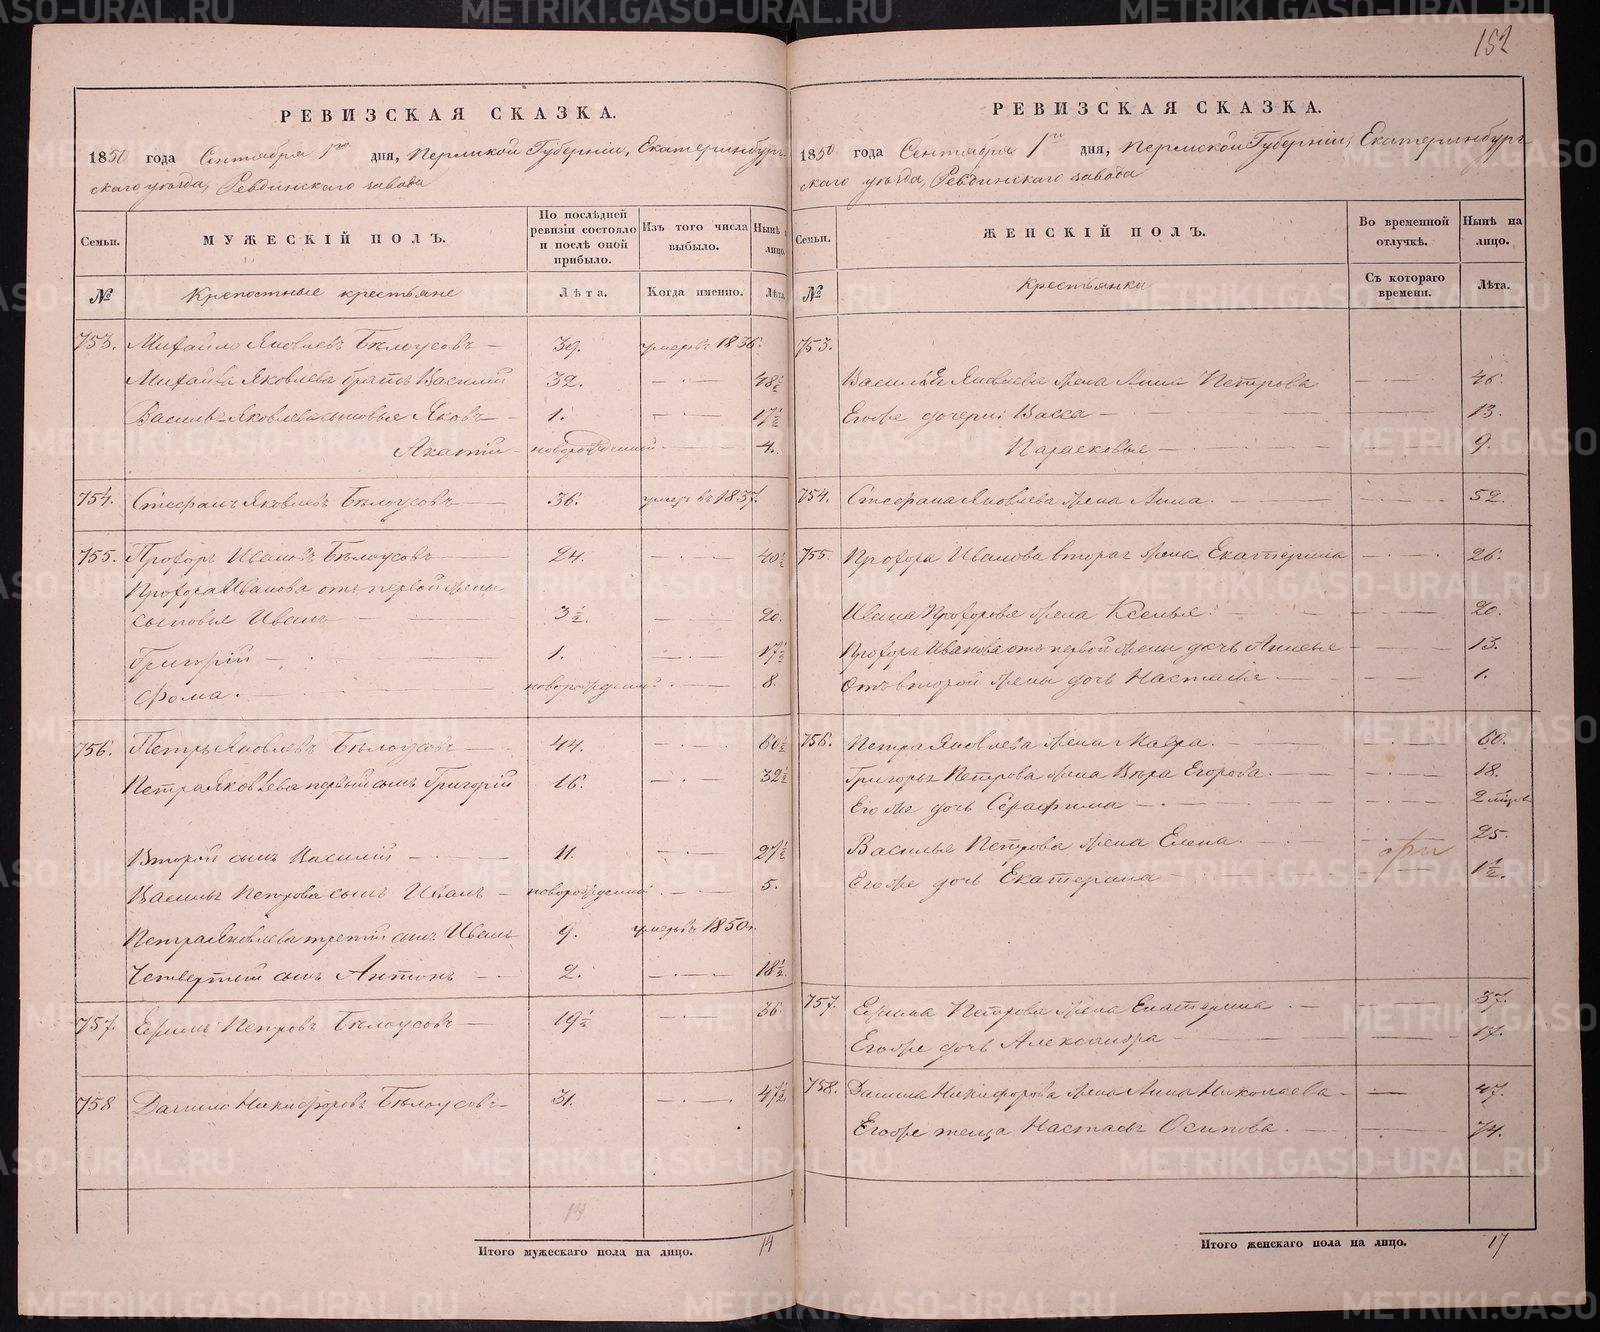 152
РЕВИЗСКАЯ СКАЗКА.
1850 года Сентября 1го дня, Пермской Губернiи, Екатеринбург-
скаго уѣзда, Ревдинскаго завода
Семьи.
МУЖЕСКІЙ ПОЛЪ.
По послѣдней ревизіи состояло и послѣ оной прибыло.
Изъ того числа выбыло.
Нынѣ на лицо.
№
Крепостные крестьяне
Лѣта.
Когда именно.
Лѣта.
753. Михайло Яковлевъ Бѣлоусовъ — 39. умеръ въ 1836.
Михайла Яковлева братъ Василій 32. 48½
Василья Яковлева сыновья Яковъ — 1. 17½
Акатій — новорожденный 4.
754. Стефанъ Яковлевъ Бѣлоусовъ — 36. умеръ въ 1837.
755. Прохоръ Ивановъ Бѣлоусовъ — 24. 40½
Прохора Иванова отъ первой жены
сыновья Иванъ — 3½. 20.
Григорій — 1. 17½
Фома. — новорожденный 8.
756. Петръ Яковлевъ Бѣлоусовъ — 44. 60½
Петра Яковлева первый сынъ Григорій 16. 32½
Второй сынъ Василій — 11. 27½
Василья Петрова сынъ Иванъ — новорожденный 5.
Петра Яковлева третій сынъ Иванъ 9. умеръ въ 1850 г.
Четвертый сынъ Антонъ — 2. 18½
757. Ефимъ Петровъ Бѣлоусовъ — 19½ 36.
758 Данило Никифоровъ Бѣлоусовъ — 31. 47½
14
Итого мужескаго пола на лицо. 14
РЕВИЗСКАЯ СКАЗКА.
1850 года Сентября 1го дня, Пермской Губернiи, Екатеринбург-
скаго уѣзда, Ревдинскаго завода
Семьи.
ЖЕНСКІЙ ПОЛЪ.
Во временной отлучкѣ.
Нынѣ на лицо.
№
крестьянки
Съ котораго времени.
Лѣта.
753.
Василья Яковлева жена Анна Петрова 46.
Егоже дочери: Васса — 13.
Парасковья — 9.
754. Стефана Яковлева жена Анна. 52.
755. Прохора Иванова вторая жена Екатерина 26.
Ивана Прохорова жена Ксенья. 20.
Прохора Иванова отъ первой жены дочь 13.
Отъ второй жены дочь Настасья 1.
756. Петра Яковлева жена Мавра. 60.
Григорья Петрова жена Вѣра Егорова. 18.
Егоже дочь Серафима — 2
Василья Петрова жена Елена. 25.
Егоже дочь Екатерина — 1½.
757. Ефима Петрова жена Екатерина 37.
Егоже дочь Александра 17.
758. Данила Никифорова жена Анна Николаева 47.
Егоже теща Настасья Осипова. 74.
Итого женскаго пола на лицо. 17
METRIKI.GASO-URAL.RU